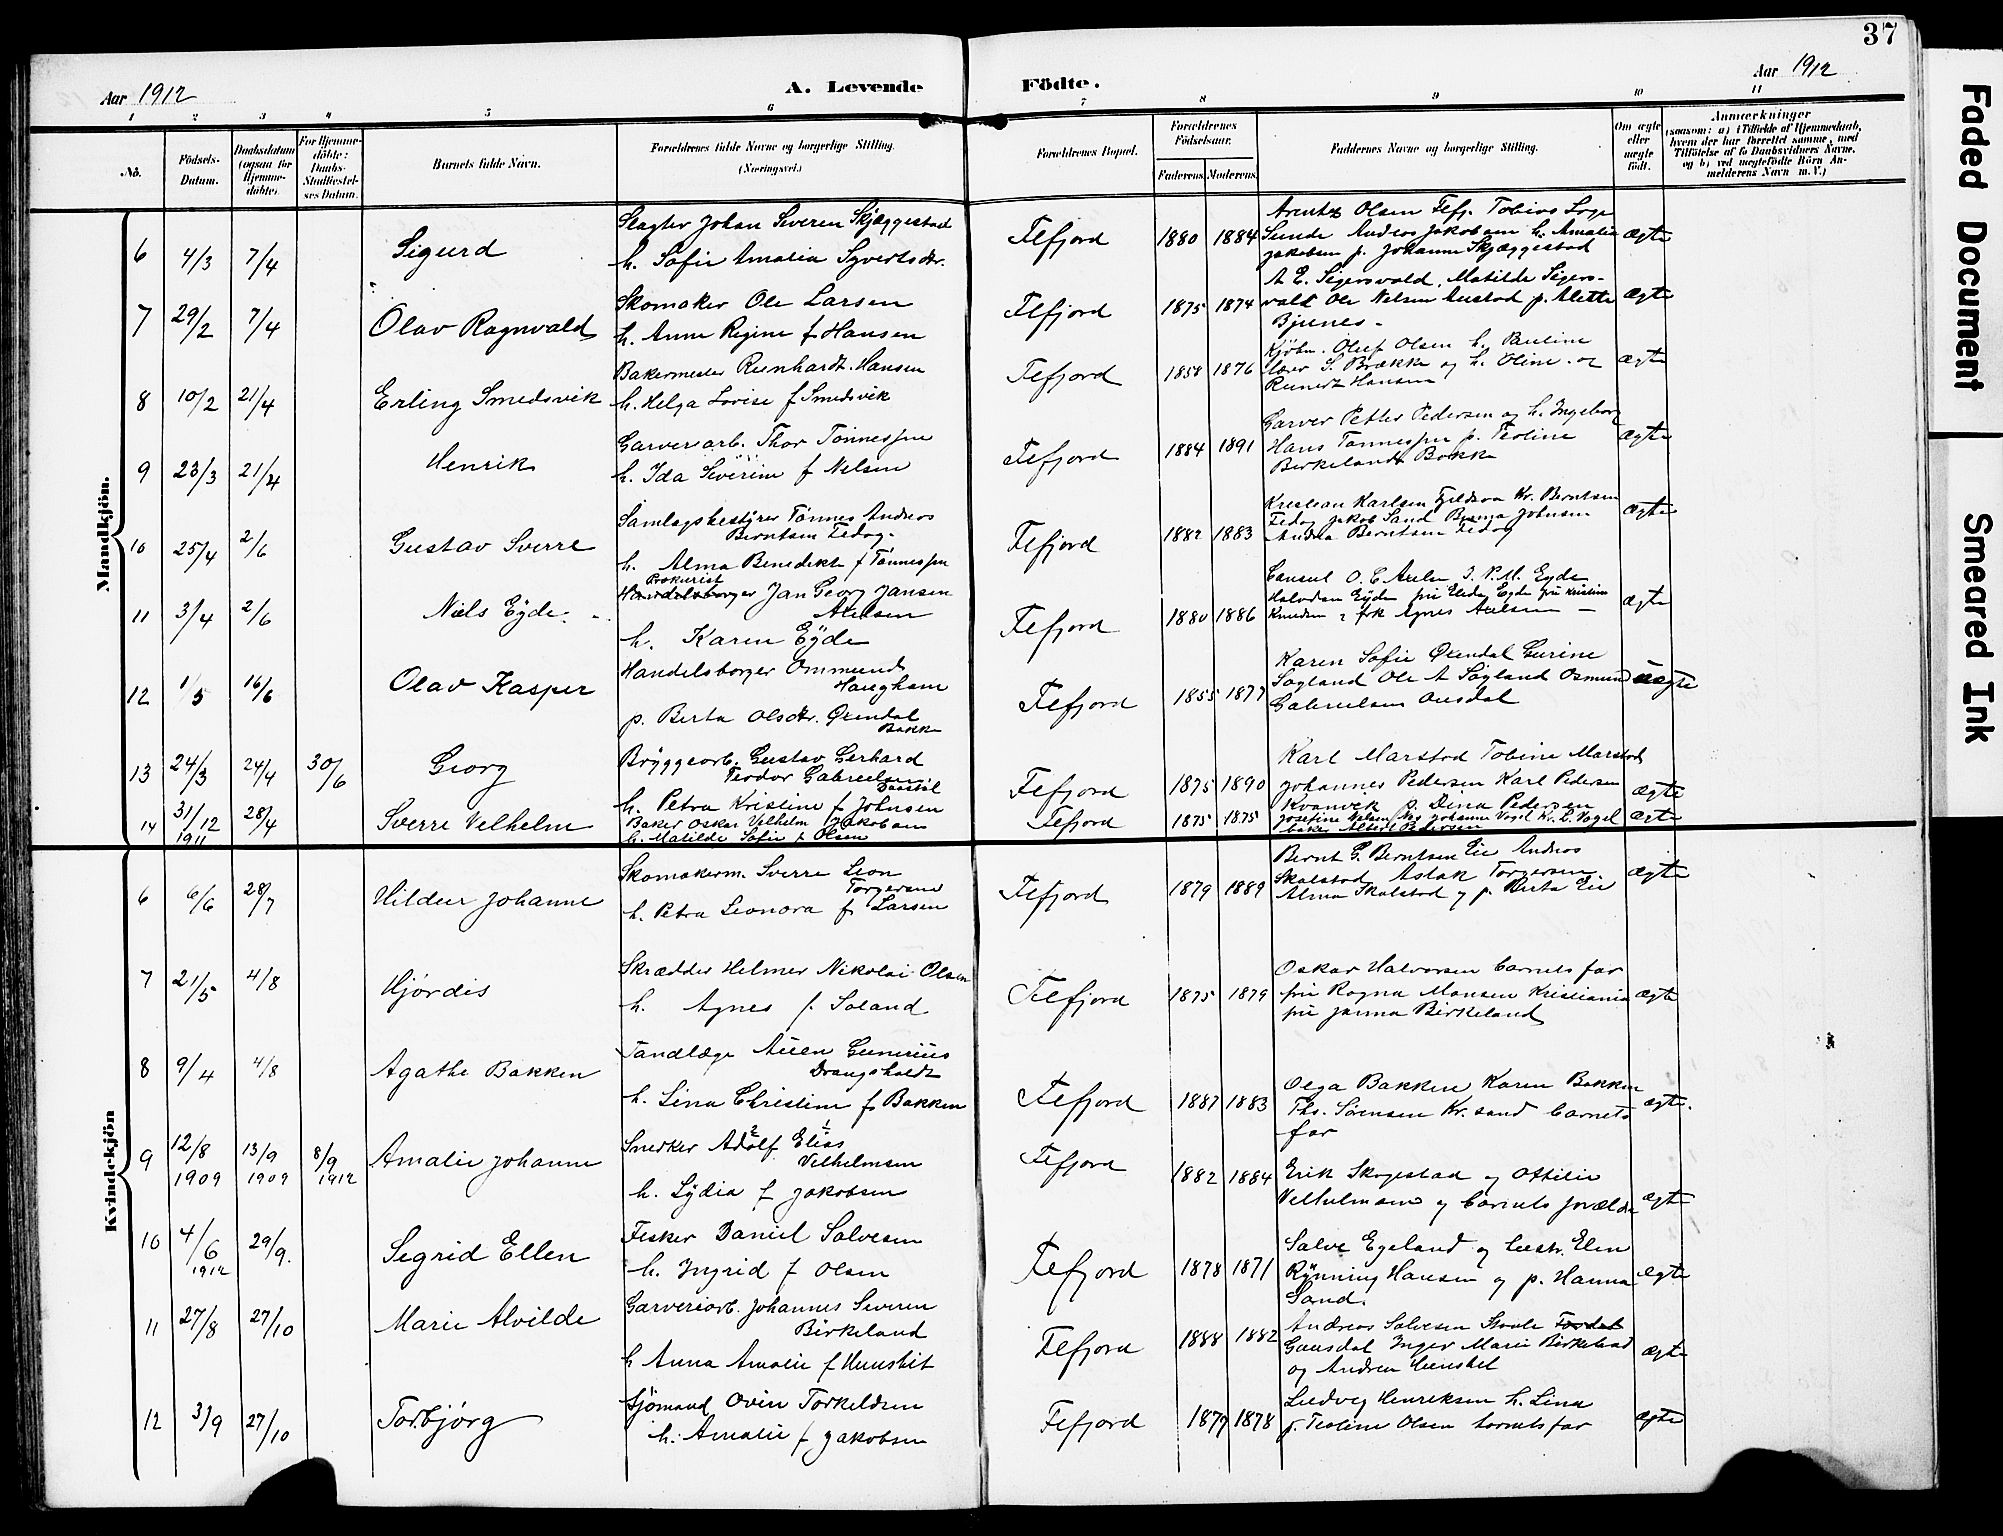 37
Aar 1912
A. Levende Födte.
Aar 1912
1 2 3 4 5 6 7 8 9 10 11
No.
Födsels-Datum.
Daabsdatum (ogsaa for Hjemme-döbte).
For Hjemme-döbte: Daabs-Stadfæstelses Datum.
Barnets fulde Navn.
Forældrenes fulde Navne og borgerlige Stilling. (Næringsvei.)
Forældrenes Bopæl.
Forældrenes Födselsaar.
Faderens. Moderens.
Faddernes Navne og borgerlige Stilling.
Om ægte eller uægte födt.
Anmærkninger
(saasom: a) i Tilfælde af Hjemmedaab, hvem der har forrettet samme, med Tilföielse af to Daabsvidners Navne, og b) ved uægtefödte Börn Anmelderens Navn m. V.)
Mandkjön.
6 4/3 7/4 Sigurd
Slagter Johan Severin Skjæggestad
h. Sofie Amalia Syvertsdtr.
Flefjord 1880 1884
Arentz Olsen Flefj. Tobias Loge
Sunde Andreas Jakobsen h. Amalia
Jakobsen p. Johanne Skjæggestad
ægte
7 29/2 7/4 Olav Ragnvald
Skomaker Ole Larsen
h. Anne Regine f Hansen
Flefjord 1875 1874
A E. Sigersvold, Matilde Sigers-
vold Ole Nelsen Austad p. Alette
Bjunes -
ægte
8 10/2 21/4 Erling Smedsvik
Bakermester Reinhardt Hansen
h. Helga Lovise f Smedsvik
Flefjord 1858 1876
Kjöbm. Oluf Olsen h. Pauline
lærer S. Brække og h. Oline og
Reinert Hansen
ægte
9 23/3 21/4 Henrik
Garveriarb. Thor Tönnessen
h. Ida Severine f Nelsen
Flefjord 1884 1891
Garver Petter Pedersen og h. Ingeborg
Hans Tönnessen p. Teoline
Birkeland Bakke
ægte
10 25/4 2/6 Gustav Sverre
Samlagsbestyrer Tönnes Andreas
Berntsen Fedog.
h. Alma Benedikte f Tönnessen
Flefjord 1882 1883
Kristian Karlsen Kr. Berntsen
Fedog Jakob Sand Johnsen
Andrea Berntsen Fedog
ægte
11 3/4 2/6 Niels Eyde.
Prokurist
Handelsborger Jan Georg Jansen
Axelsen
h. Karen Eyde
Flefjord 1880 1886
Consul O. C. Axelsen I. P. M. Eyde
Halvdan Eyde fru Eyde fru Kristine
Knudsen frk Agnes Axelsen -
ægte
12 1/5 16/6 Olav Kasper
Handelsborger Ommund
Haugham
p. Berta Olsdtr. Öxendal
Bakke
Flefjord 1855 1877
Karen Sofie Öxendal Gurine
Sögland Ole A Sögland Osmund
Gabrielsen Ousdal
uægte
13 24/3 24/4 30/6 Georg
Bryggearb. Gustav Gerhard
Teodor Gabrielsen
h. Petra Kristine f Johnsen
Flefjord 1875 1890
Karl Marstad Tobine Marstad
Johannes Pedersen Karl Pedersen
Kvanvik p. Dina Pedersen
ægte
14 31/12 1911 28/4 Sverre Velhelm
Baker Oskar Velhelm Jakobsen
h. Matilde Sofie f Olsen
Flefjord 1875 1875
Josefine Nelsen Johanne Vogel Kr. L. Vogel
baker Albert Pedersen
ægte
Kvindekjön
6 6/6 28/7 Hildur Johanne
Skomakerm. Sverre Leon
Torgersen
h. Petra Leonora f Larsen
Flefjord 1879 1889
Bernt G. Berntsen Eie Andreas
Skolstad Aslak Torgersen
Alma Skolstad og p. Berta Eie
ægte
7 21/5 4/8 Hjördis
Skrædder Helmer Nikolai Olsen
h. Agnes f. Soland
Flefjord 1875 1879
Oskar Halvorsen barnets far
fru Ragna Monsen Kristiania
fru Janna Birkeland
ægte
8 9/4 4/8 Agathe Bakken
Tandlæge Gunerius
Drangsholdt
h. Lina Christine f Bakken
Flefjord 1887 1883
Olga Bakken Karen Bakken
Ths. Sörensen Kr.sand barnets
far
ægte.
9 12/8 1909 13/9 1909 8/9 1912 Amalie Johanne
Snedker Adolf Elias
Velhelmsen
h. Lydia f Jakobsen
Flefjord 1882 1884
Erik Skogestad og Ottilie
Velhelmsen og barnets forældre
ægte
10 4/6 1912 29/9. Segrid Ellen
Fesker Daniel Salvesen
h. Ingrid f Olsen
Flefjord 1878 1871
Salve Egeland og hustr. Elen
Rynning Hansen og p. Hanna
Sand.
ægte
11 27/8 27/10 Marie Alvilde
Garveriarb. Johannes Severin
Birkeland
h Anna Amalie f Hunsbit
Flefjord 1888 1882
Andreas Salvesen Stoole
Gausdal Inger Marie Birkeland
og Andrea
ægte
12 3/9 27/10 Torbjörg
Sjömand Ovin Torkeldsen
h. Amalie f Jakobsen
Flefjord 1879 1878
Ludvig Henriksen h. Lina
p. Teoline Olsen barnets far
ægte
Faded Document
Smeared Ink